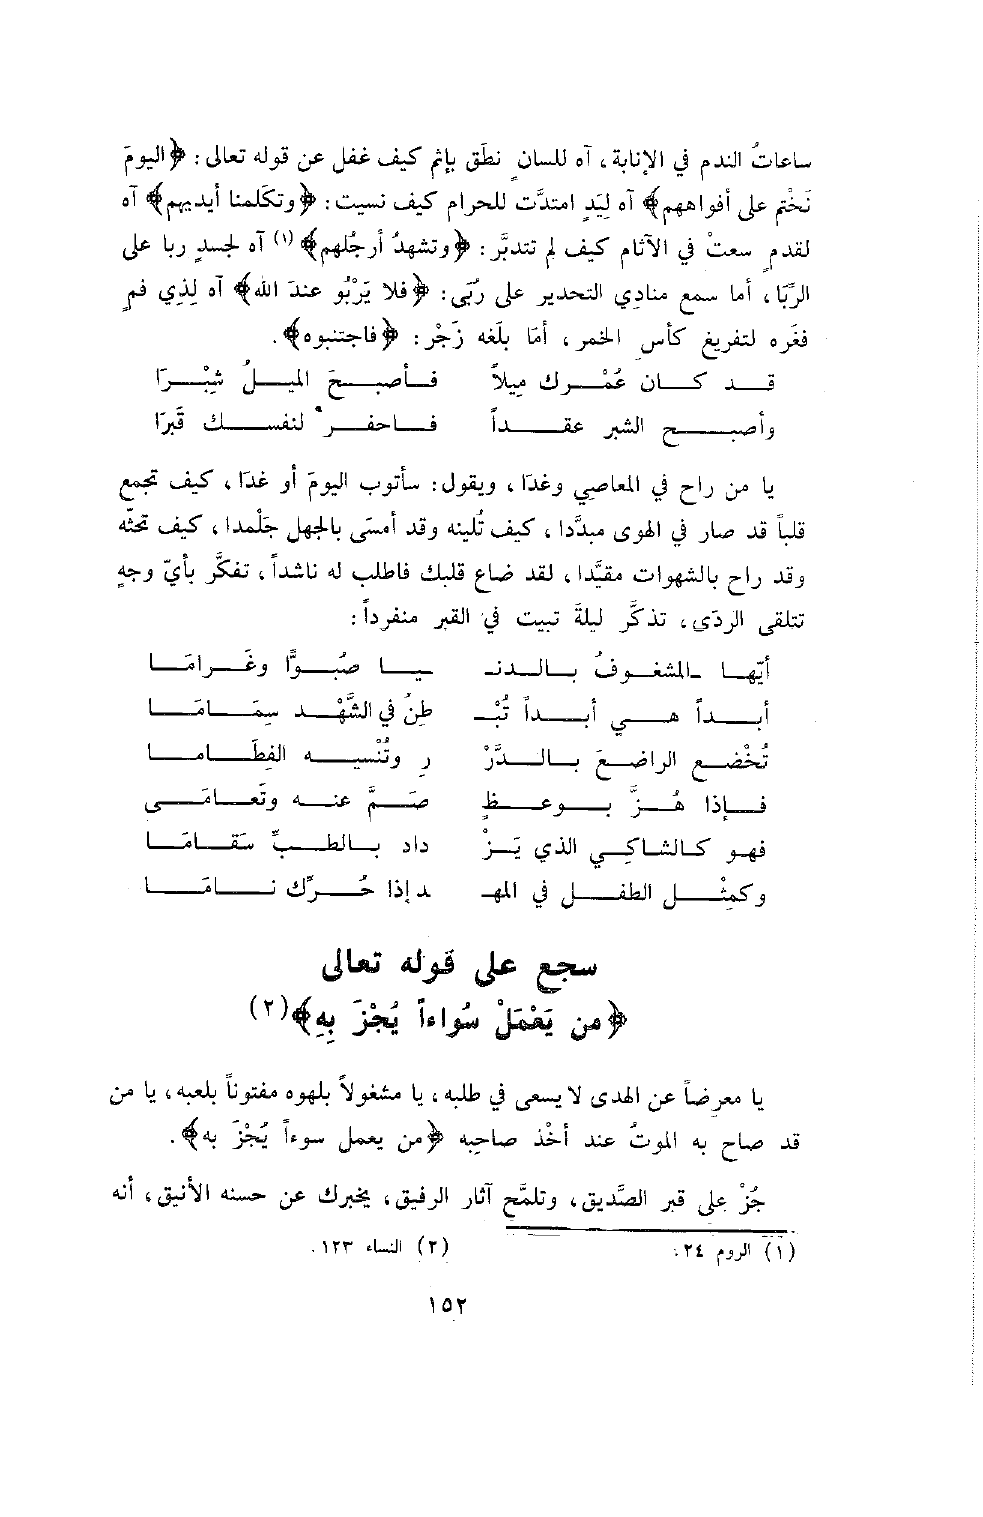 ساعاتُ الندم في الإنابة، آه للسانٍ نطَق بإثم كيف غفل عن قوله تعالى: ﴿اليومَ
نَخْتم على أفواههم﴾ آه لِيَدٍ امتدَّت للحرام كيف نسيت: ﴿وتكَلمنا أيديهم﴾ آه
لقدمٍ سعتْ في الآثام كيف لم تتدبَّر: ﴿وتشهدُ أرجُلهم﴾ (١) آه لجسدٍ ربا على
الرِّبَا، أما سمع منادي التحدير على رُبَى: ﴿فلا يَرْبُو عندَ الله﴾ آه لِذِي فمٍ
فغَره لتفريغ كأس الخمر، أمَا بلَغه زَجْر: ﴿فاجتنبوه﴾.
قد كان عُمْرك مِيلاً فأصبحَ الميلُ شِبْرَا
وأصبح الشبر عقداً فاحفر لنفسك قَبرَا
يا من راح في المعاصي وغدَا، ويقول: سأتوب اليومَ أو غدَا، كيف تجمع
قلباً قد صار في الهوى مبدَّدا، كيف تُلينه وقد أمسَى بالجهل جَلْمدا، كيف تحثّه
وقد راح بالشهوات مقيَّدا، لقد ضاع قلبك فاطلب له ناشداً، تفكَّر بأيّ وجهٍ
تتلقى الردَى، تذكَّر ليلةَ تبيت في القبر منفرداً:
أيّها المشغوفُ بالدنـ ـيا صُبُوًّا وغَرامَا
أبداً هي أبداً تُبْـ طِنُ في الشَّهْد سِمَامَا
تُخْضع الراضعَ بالدَّرْ رِ وتُنْسيه الفِطَاما
فإذا هُزَّ بوعظٍ صَمَّ عنه وتَعَامَى
فهو كالشاكِي الذي يَزْ داد بالطبِّ سَقَامَا
وكمِثْل الطفل في المهـ ـد إذا حُرِّك نَامَا
سجع على قوله تعالى
﴿من يَعْمَلْ سُواءاً يُجْزَ بِهِ﴾(٢)
يا معرضاً عن الهدى لا يسعى في طلبه، يا مشغولاً بلهوه مفتوناً بلعبه، يا من
قد صاح به الموتُ عند أخْذ صاحِبه ﴿من يعمل سوءاً يُجْزَ به﴾.
جُزْ على قبر الصَّديق، وتلمَّح آثار الرفيق، يخبرك عن حسنه الأنيق، أنه
(١) الروم ٢٤. (٢) النساء ١٢٣.
١٥٢